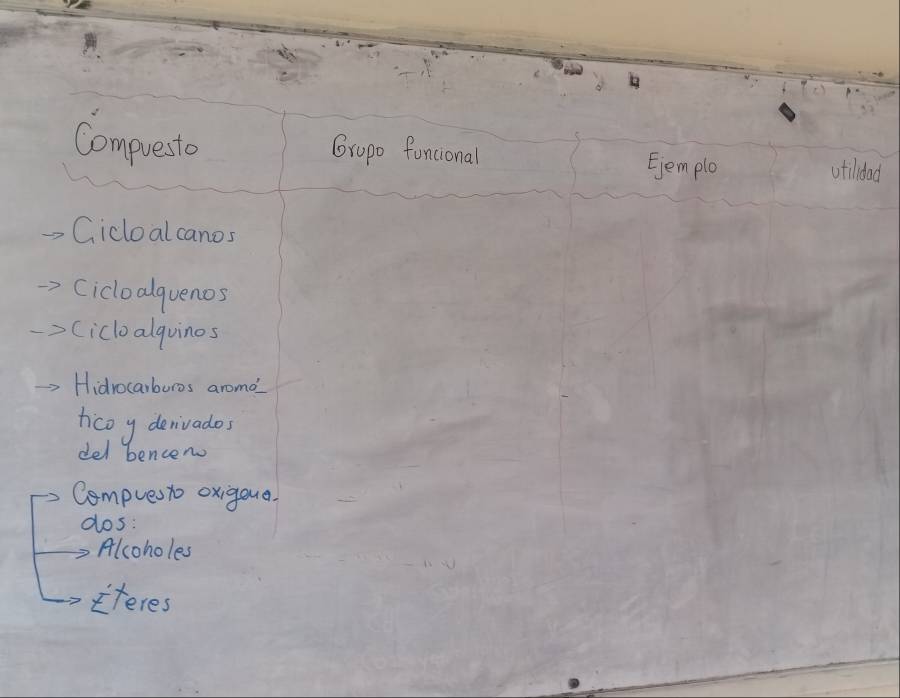 Compuesto Grupo funcional Ejemplo utilidad
→ Cicloalcanos
→ Cicloalquenos
→ Cicloalquinos
→ Hidrocarburos aromá-
tico y derivados
del benceno
→ Compuesto oxigena-
dos:
→ Alcoholes
→ Éteres